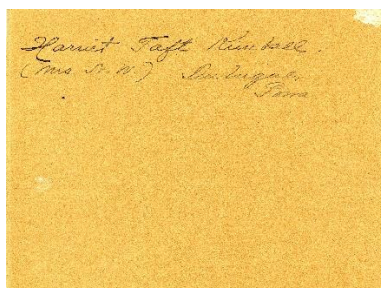 Harriet Taft Kimball.
(Mrs. N. W.) Dubuque
Iowa